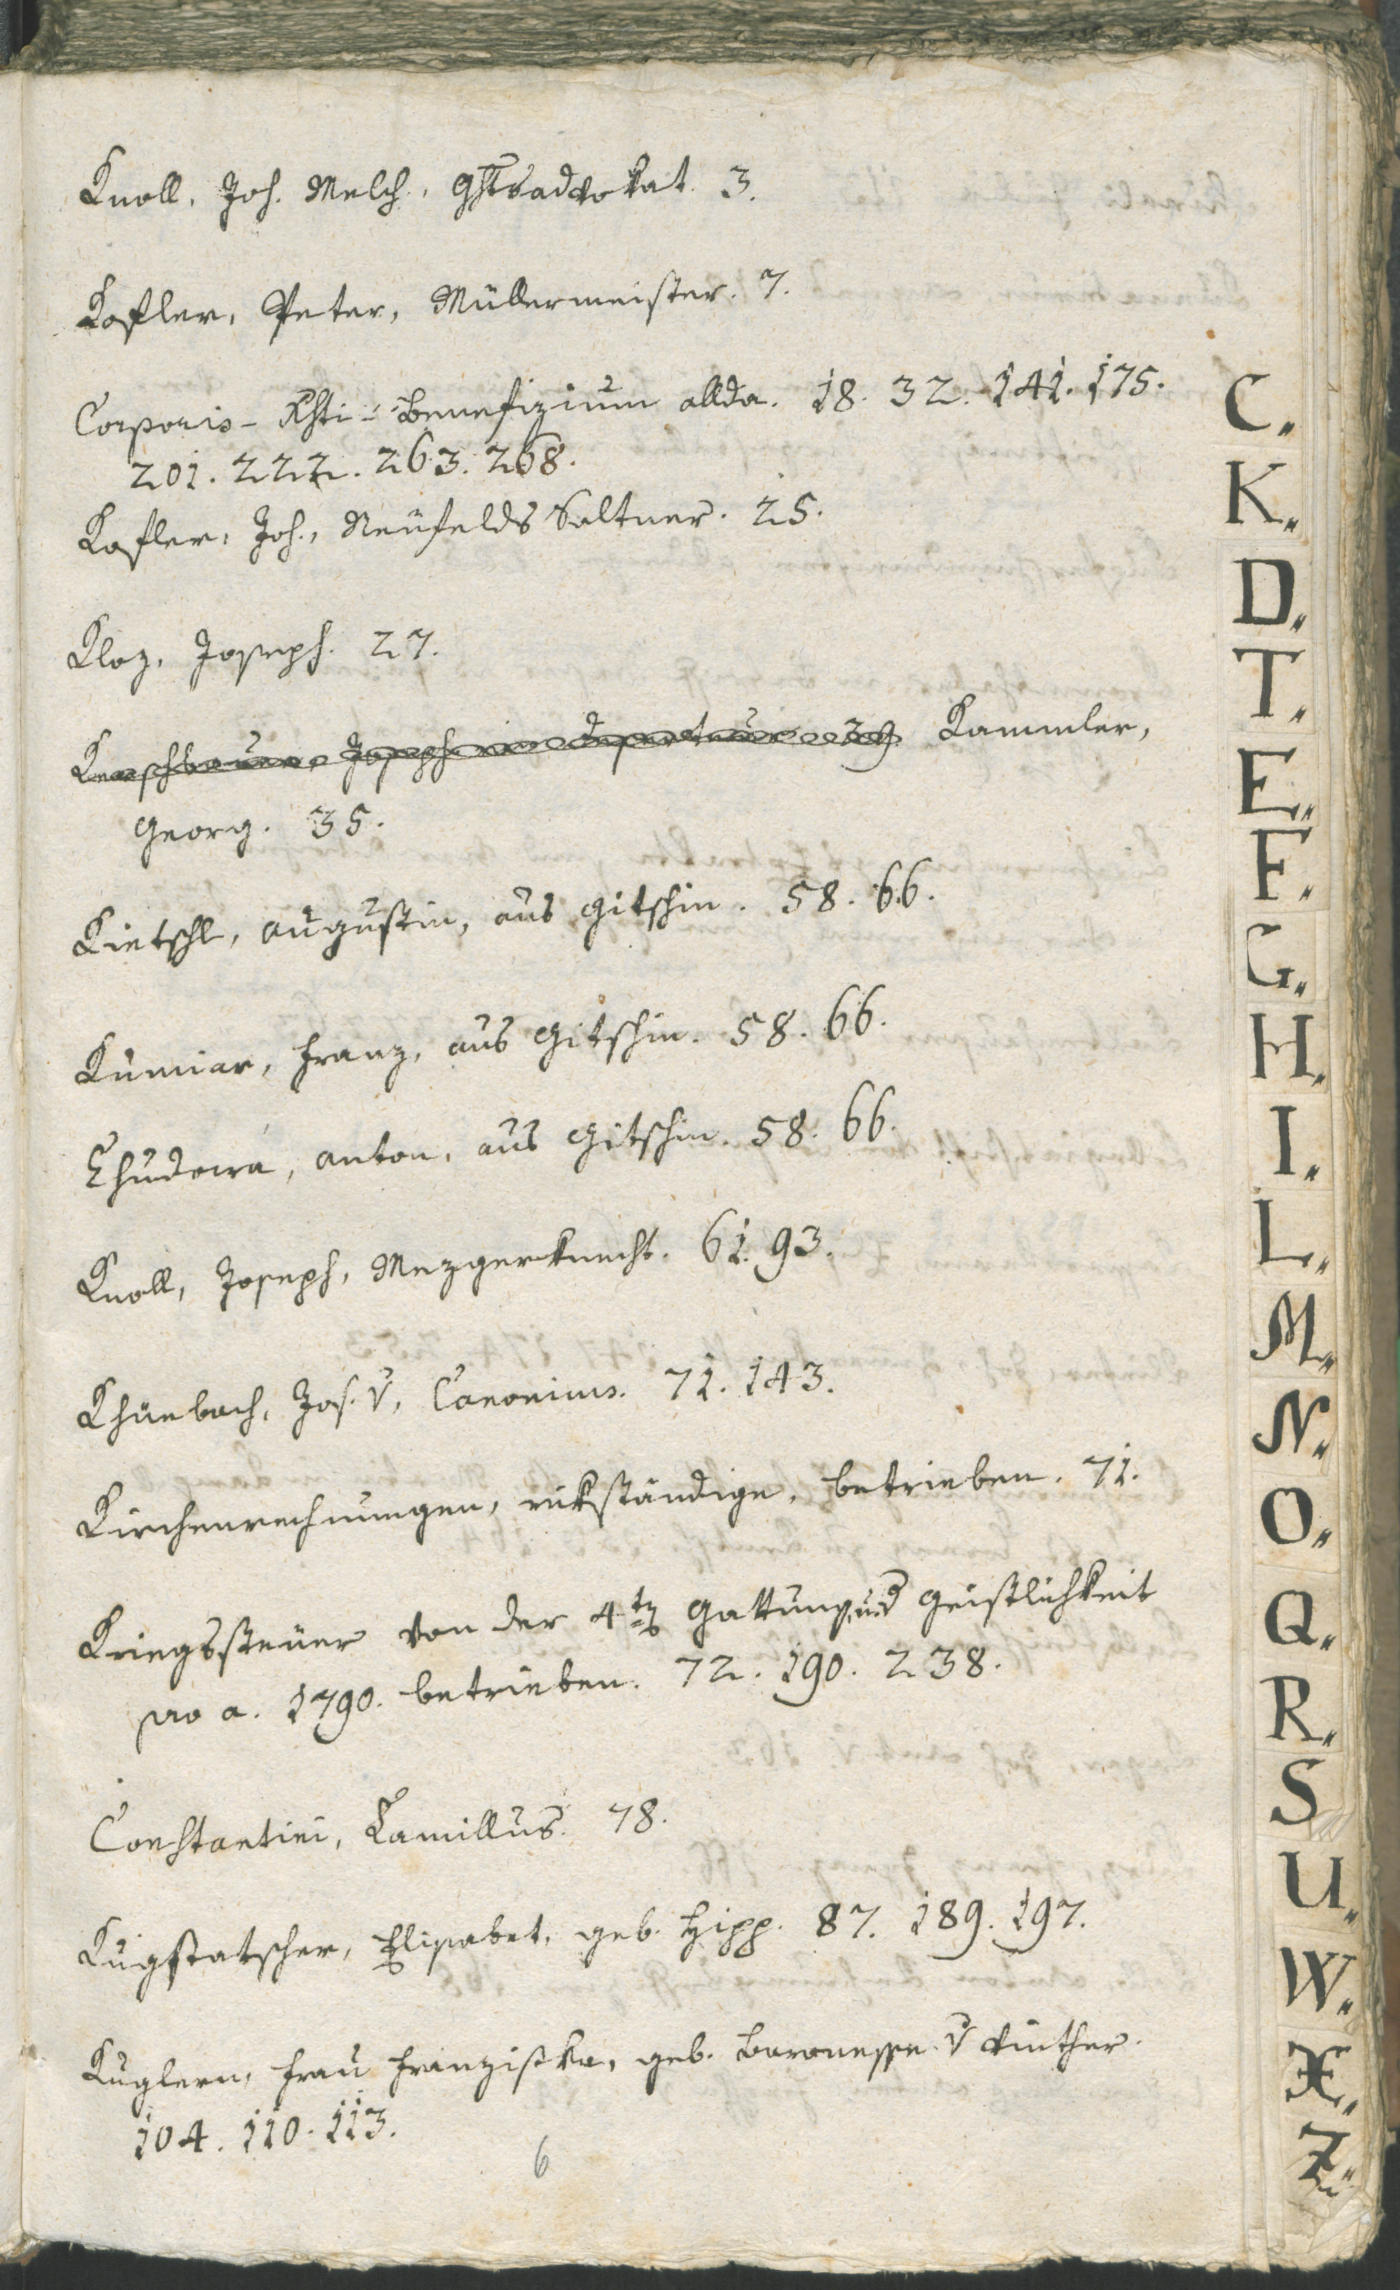 Knoll, Joh. Melch., Ghtsadvokat. 3.
Kofler, Peter, Müllermeister. 7.
Corporis-Xsti-Benefizium allda. 18. 32. 141. 175.
201. 222. 263. 268.
Kofler, Joh., Neufelds Saltner. 25.
Kloz, Joseph. 27.
Kerschbaumer, Joseph Kammler,
Georg. 35.
Kietschl, Augustin, aus Gitschin. 58. 66.
Kumiar, Franz, aus Gitschin. 58. 66.
Chudowa, Anton, aus Gitschin. 58. 66.
Knoll, Joseph, Mezgerknecht. 61. 93.
Khünbach, Jos. v, Canonicus. 71. 143.
Kirchenrechnungen, rükständige, betrieben. 71.
Kriegssteuer von der 4ten Gattung und Geistlichkeit
pro a. 1790. betrieben. 72. 190. 238.
Constantini, Kamillus. 78.
Kugstatscher, Elisabet, geb. Hipp. 87. 189. 197.
Kuglern, Frau Franziska, geb. Baronesse v Vinther.
104. 110. 113.
6
C.
K.
D.
T.
E.
F.
G.
H.
I.
L.
M.
N.
O.
Q.
R.
S
U.
W.
X.
Z.